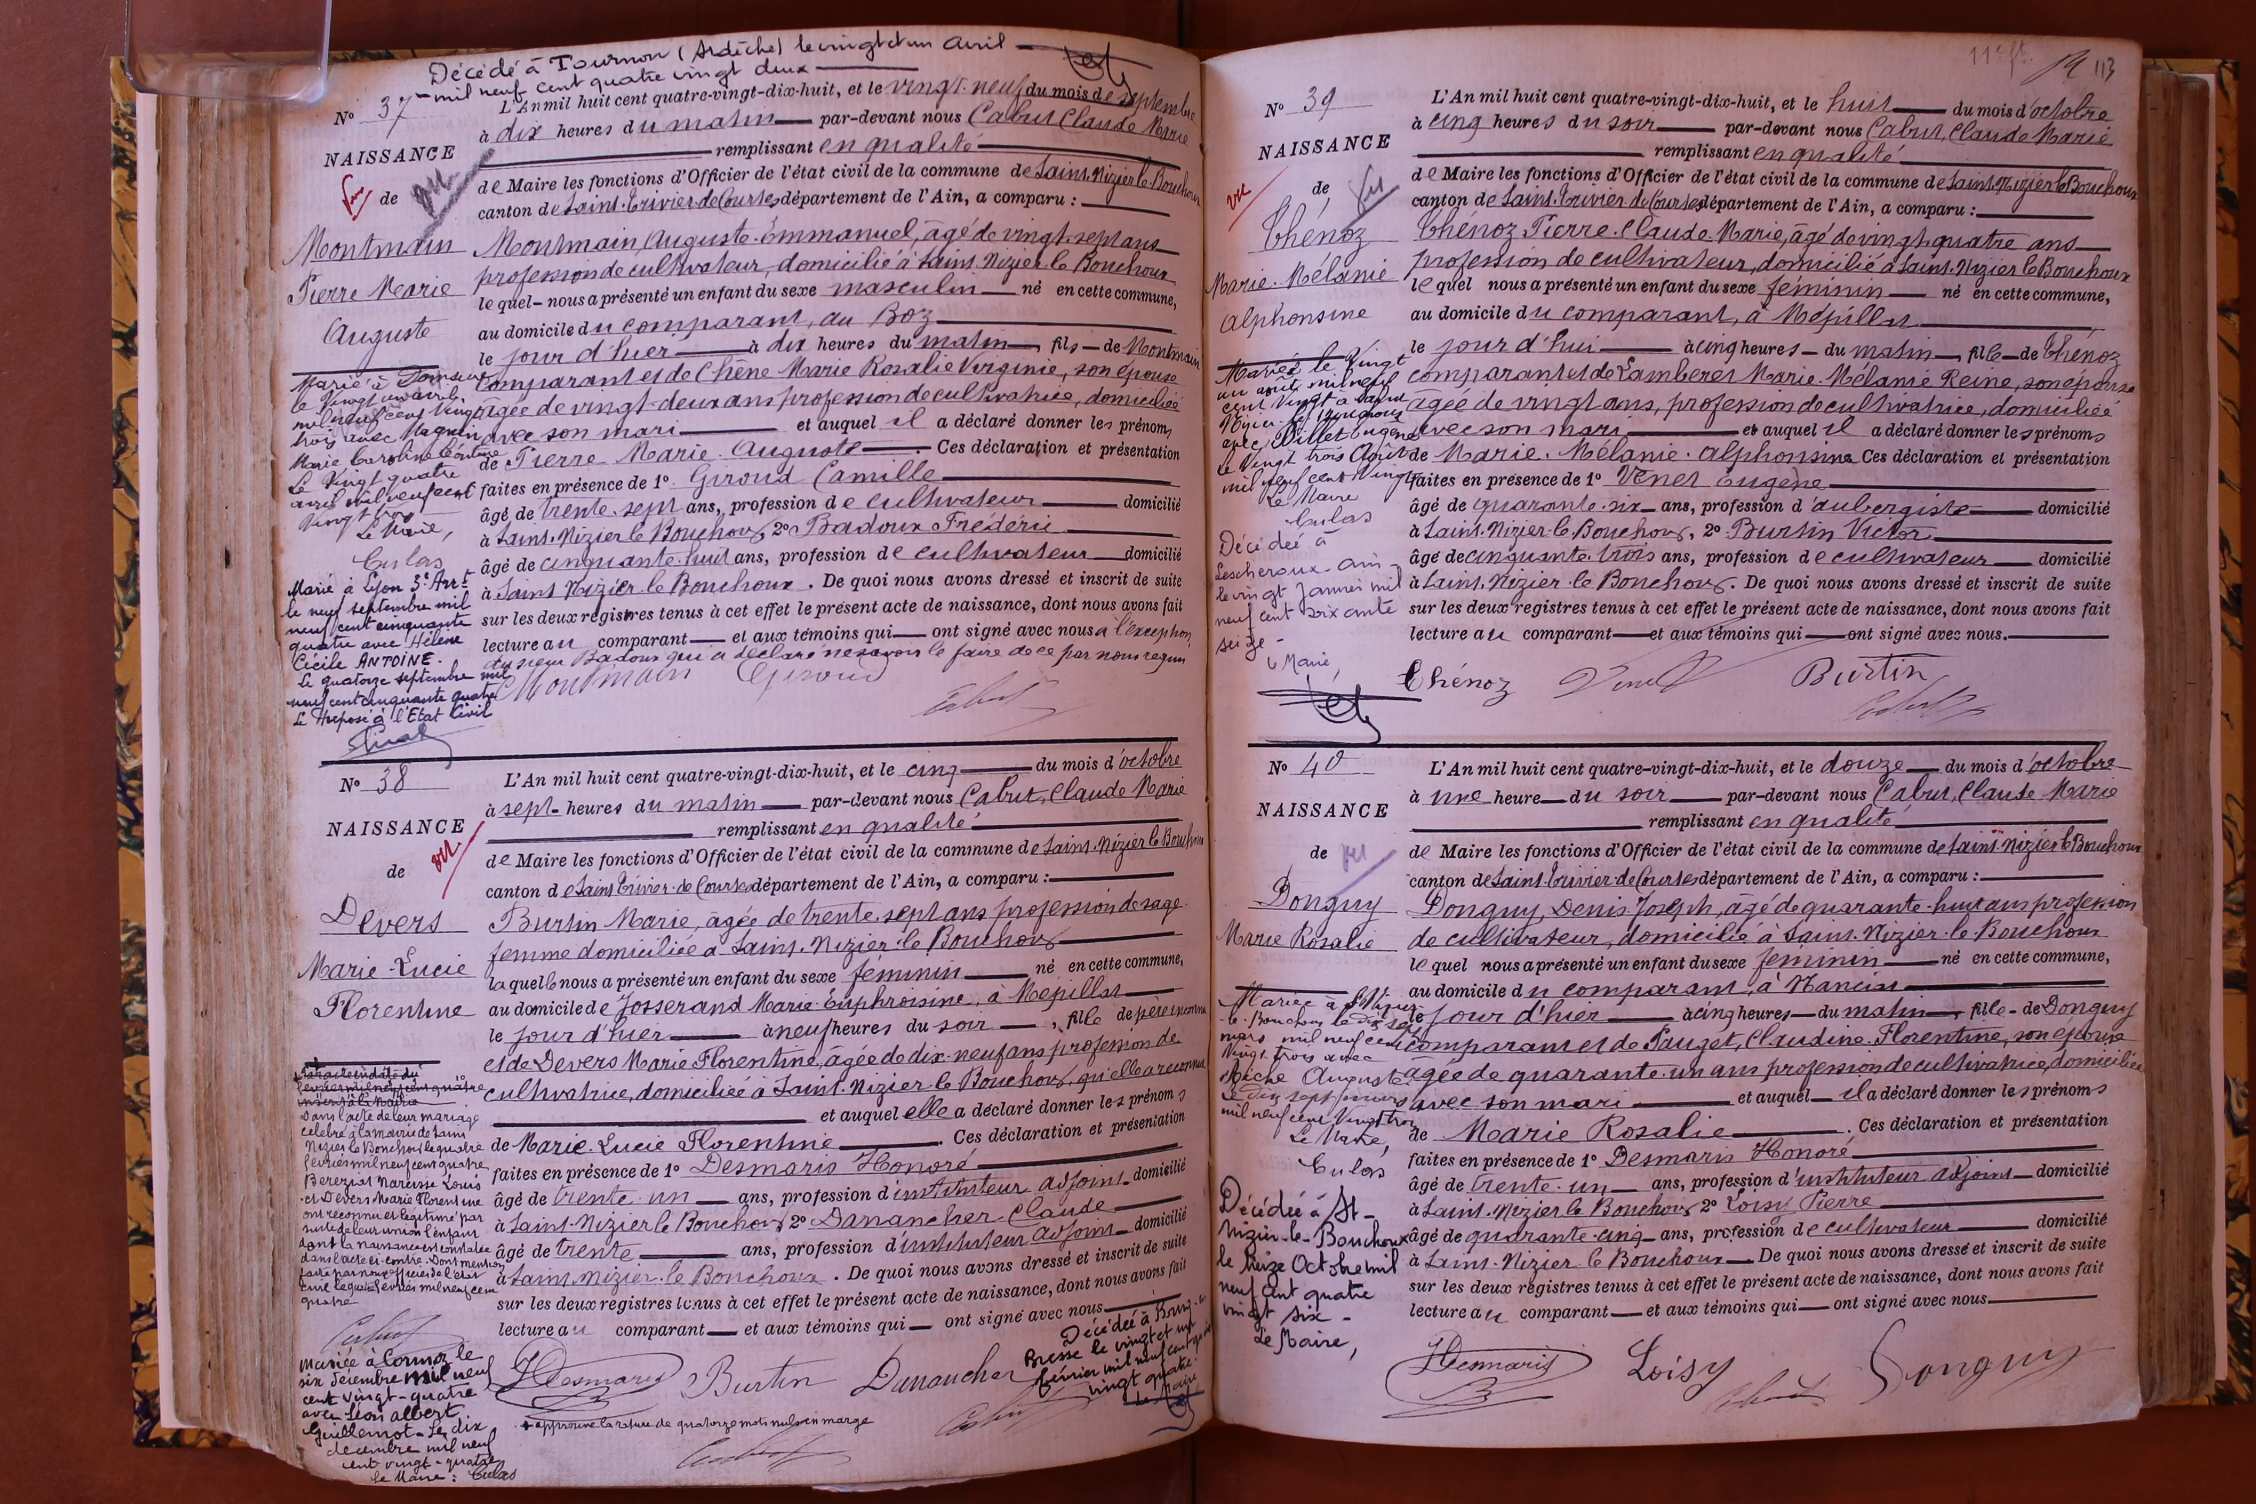 Décédé à Tournon (Ardèche) le vingt et un Avril
mil neuf cent quatre vingt deux
No 37
NAISSANCE
de
Montmain
Pierre Marie
Auguste
L'An mil huit cent quatre-vingt-dix-huit, et le vingt-neuf du mois de septembre
à dix heures du matin par-devant nous Cabut Claude Marie
remplissant en qualité
de Maire les fonctions d'Officier de l'état civil de la commune de Saint-Nizier le Bouchoux
canton de Saint-Trivier de Courtes département de l'Ain, a comparu :
Montmain, Auguste Emmanuel, âgé de vingt-sept ans
profession de cultivateur, domicilié à Saint-Nizier le Bouchoux
le quel nous a présenté un enfant du sexe masculin né en cette commune,
au domicile du comparant, au Boz
le jour d'hier à dix heures du matin, fils de Montmain
comparant et de Chêne Marie Rosalie Virginie, son épouse
âgée de vingt-deux ans profession de cultivatrice, domiciliée
avec son mari et auquel il a déclaré donner les prénoms
de Pierre Marie Auguste. Ces déclaration et présentation
faites en présence de 1o Giroud Camille
âgé de trente-sept ans, profession de cultivateur domicilié
à Saint-Nizier le Bouchoux, 2o Badoux Frédéric
âgé de cinquante-huit ans, profession de cultivateur domicilié
à Saint Nizier le Bouchoux. De quoi nous avons dressé et inscrit de suite
sur les deux registres tenus à cet effet le présent acte de naissance, dont nous avons fait
lecture au comparant et aux témoins qui ont signé avec nous à l'exception
du sieur Badoux qui a déclaré ne savoir le faire de ce par nous requis
Montmain Giroud
Marié à
le Vingt un avril
mil neuf cent Vingt
trois avec Magnin
Marie Caroline Léontine
Le Vingt quatre
avril mil neuf cent
Vingt trois
Le Maire,
Culas
Marié à Lyon 3e Arrt
le neuf septembre mil
neuf cent cinquante
quatre avec Hélène
Cécile ANTOINE.
Le quatorze septembre mil
neuf cent cinquante quatre
Le Préposé à l'Etat Civil
No 38
NAISSANCE
de
Devers
Marie-Lucie
Florentine
L'An mil huit cent quatre-vingt-dix-huit, et le cinq du mois d'octobre
à sept heures du matin par-devant nous Cabut, Claude Marie
remplissant en qualité
de Maire les fonctions d'Officier de l'état civil de la commune de Saint-Nizier le Bouchoux
canton de Saint Trivier-de Courtes département de l'Ain, a comparu :
Burtin Marie, âgée de trente-sept ans profession de sage-
femme domiciliée à Saint-Nizier-le Bouchoux
la quelle nous a présenté un enfant du sexe féminin né en cette commune,
au domicile de Josserand Marie Euphroisine, à Mépillat
le jour d'hier à neuf heures du soir, fille de père inconnu
et de Devers Marie Florentine, âgée de dix-neuf ans profession de
cultivatrice, domiciliée à Saint-Nizier le Bouchoux, qu'elle a reconnu
et auquel elle a déclaré donner les prénoms
de Marie Lucie Florentine. Ces déclaration et présentation
faites en présence de 1o Desmaris Honoré
âgé de trente-un ans, profession d'instituteur adjoint domicilié
à Saint-Nizier le Bouchoux 2o Danancher Claude
âgé de trente ans, profession d'instituteur adjoint domicilié
à Saint-Nizier-le Bouchoux. De quoi nous avons dressé et inscrit de suite
sur les deux registres tenus à cet effet le présent acte de naissance, dont nous avons fait
lecture au comparant et aux témoins qui ont signé avec nous
Desmaris Burtin Danancher
approuvé la rature de quatorze mots nuls en marge
Dans l'acte de leur mariage
célébré à la mairie de Saint
Nizier le Bouchoux le quatre
février mil neuf cent quatre
Bereziat Narcisse Louis
et Devers Marie Florentine
ont reconnu et légitimé par
suite de leur union l'enfant
dont la naissance est constatée
dans l'acte ci-contre. Dont mention
faite par nous officier de l'état
civil le quatre février mil neuf cent
quatre
Mariée à Cormoz le
six décembre mil neuf
cent vingt-quatre
avec Léon Albert
Guillemot. Le dix
décembre mil neuf
cent vingt-quatre
Le Maire : Culas
Décédée à Bourg-en
Bresse le vingt et un
février mil neuf cent quatre
vingt quatre
Le Maire
113
No 39
NAISSANCE
de
Thénoz
Marie-Mélanie
Alphonsine
L'An mil huit cent quatre-vingt-dix-huit, et le huit du mois d'octobre
à cinq heures du soir par-devant nous Cabut, Claude Marie
remplissant en qualité
de Maire les fonctions d'Officier de l'état civil de la commune de Saint-Nizier le Bouchoux
canton de Saint-Trivier de Courtes département de l'Ain, a comparu :
Thénoz Pierre Claude Marie, âgé de vingt-quatre ans
profession de cultivateur, domicilié à Saint-Nizier le Bouchoux
le quel nous a présenté un enfant du sexe féminin né en cette commune,
au domicile du comparant, à Mépillat
le jour d'hui à cinq heures du matin, fille de Thénoz
comparant et de Lamberet Marie Mélanie Reine, son épouse
âgée de vingt ans, profession de cultivatrice, domiciliée
avec son mari et auquel il a déclaré donner les prénoms
de Marie Mélanie Alphonsine Ces déclaration et présentation
faites en présence de 1o Venet Eugène
âgé de quarante-six ans, profession d'aubergiste domicilié
à Saint-Nizier-le Bouchoux, 2o Burtin Victor
âgé de cinquante-trois ans, profession de cultivateur domicilié
à Saint-Nizier-le Bouchoux. De quoi nous avons dressé et inscrit de suite
sur les deux registres tenus à cet effet le présent acte de naissance, dont nous avons fait
lecture au comparant et aux témoins qui ont signé avec nous.
Thénoz Venet Burtin
Mariée le Vingt
un août mil neuf
cent Vingt à Saint
Nizier-le Bouchoux
avec Billet Eugène
Le Vingt trois Août
mil neuf cent Vingt
Le Maire
Culas
Décédée à
Lescheroux-Ain
le vingt janvier mil
neuf cent soixante
seize
Le Maire,
No 40
NAISSANCE
de
Donguy
Marie Rosalie
L'An mil huit cent quatre-vingt-dix-huit, et le douze du mois d'octobre
à une heure du soir par-devant nous Cabut, Claude Marie
remplissant en qualité
de Maire les fonctions d'Officier de l'état civil de la commune de Saint-Nizier le Bouchoux
canton de Saint-Trivier-de Courtes département de l'Ain, a comparu :
Donguy, Denis-Joseph, âgé de quarante-huit ans profession
de cultivateur, domicilié à Saint-Nizier-le Bouchoux
le quel nous a présenté un enfant du sexe féminin né en cette commune,
au domicile du comparant, à Mancin
le jour d'hier à cinq heures du matin, fille de Donguy
comparant et de Pauget, Claudine Florentine, son épouse
âgée de quarante-un ans profession de cultivatrice, domiciliée
avec son mari et auquel il a déclaré donner les prénoms
de Marie Rosalie. Ces déclaration et présentation
faites en présence de 1o Desmaris Honoré
âgé de trente-un ans, profession d'instituteur adjoint domicilié
à Saint-Nizier le Bouchoux 2o Loisy Pierre
âgé de quarante-cinq ans, profession de cultivateur domicilié
à Saint-Nizier-le Bouchoux De quoi nous avons dressé et inscrit de suite
sur les deux registres tenus à cet effet le présent acte de naissance, dont nous avons fait
lecture au comparant et aux témoins qui ont signé avec nous
Desmaris Loisy Donguy
Mariée à St Nizier
le Bouchoux le dix sept
mars mil neuf cent
Vingt trois avec
Auguste
Le dix sept mars
mil neuf cent Vingt trois
Le Maire,
Culas
Décédée à St-
Nizier-le-Bouchoux
le treize Octobre mil
neuf cent quatre
vingt six
Le Maire,